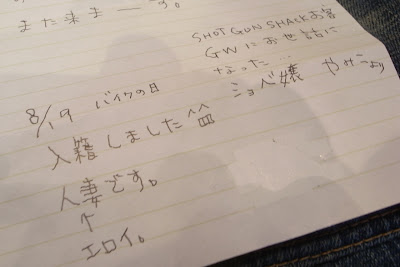 また来まーす。
SHOT GUN SHACKお客
GWにお世話に
なった…
ショベ嬢
8/19 バイクの日
入籍しました^^
人妻です。
↑
エロイ。